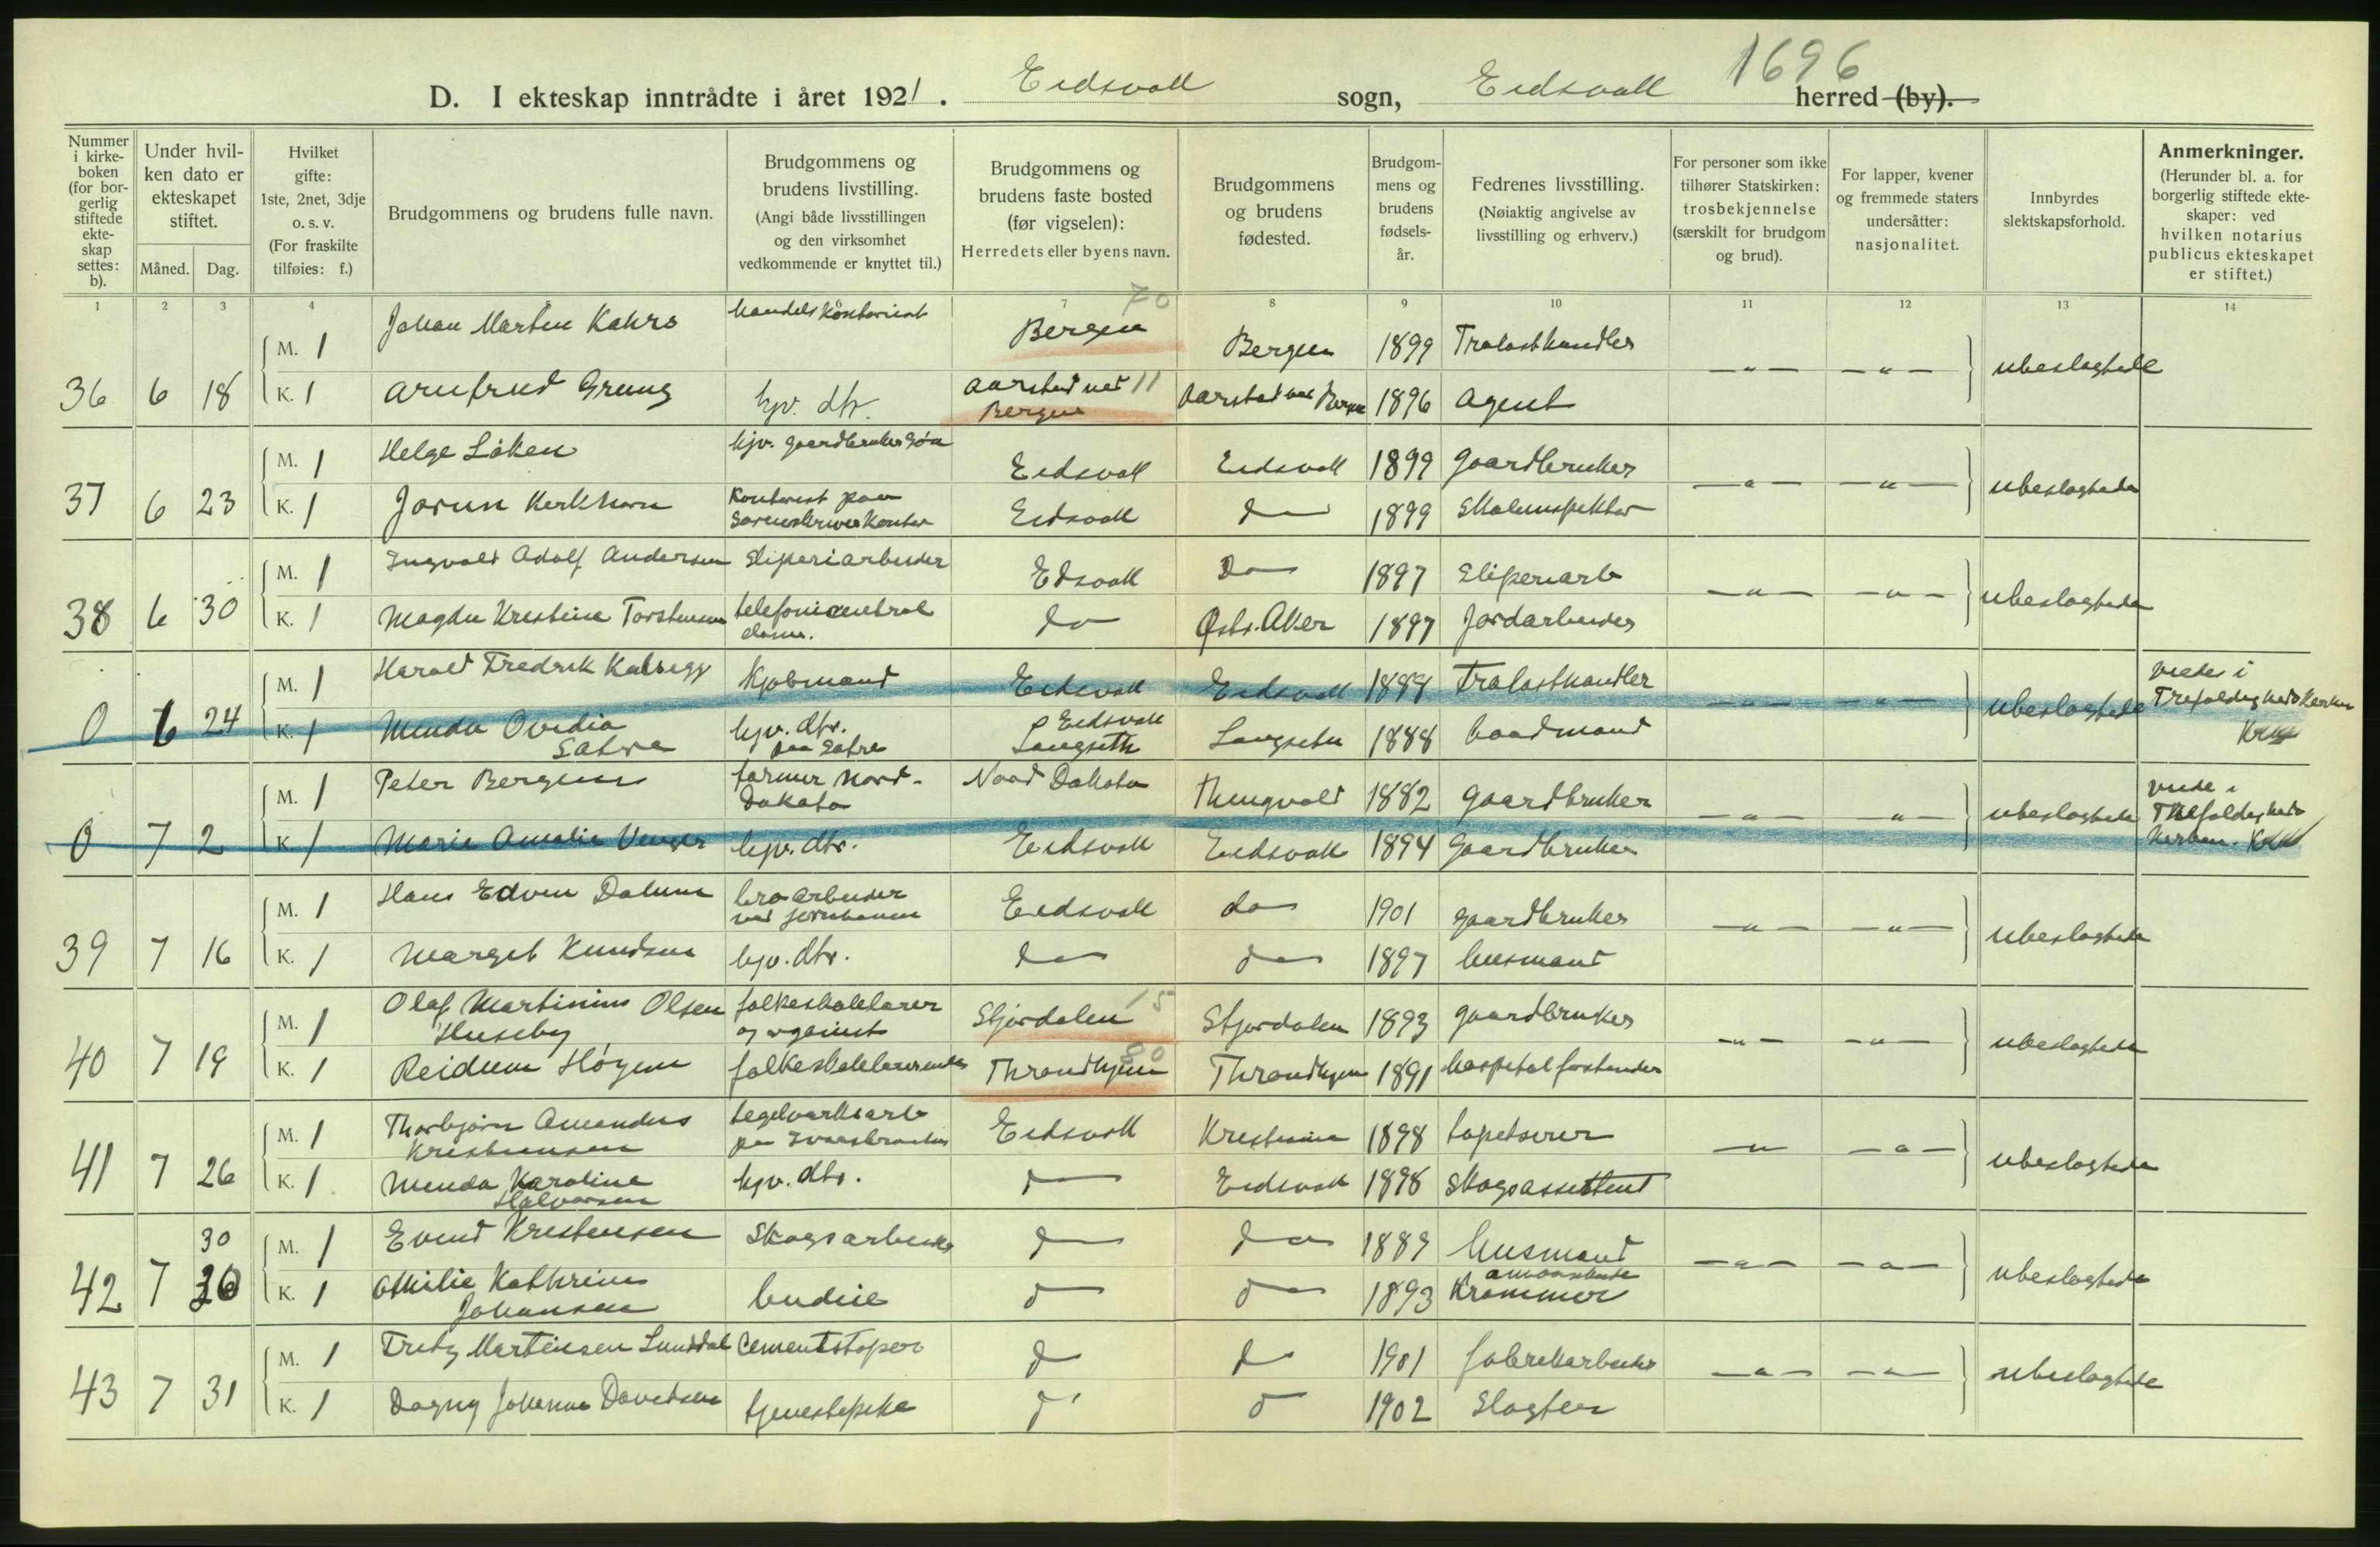 1696
D. I ekteskap inntrådte i året 1921. Eidsvoll sogn, Eidsvoll herred (by).
Nummer i kirke- boken (for bor- gerlig stiftede ekte- skap settes: b).
Under hvil- ken dato er ekteskapet stiftet.
Måned. Dag.
Hvilket gifte: 1ste, 2net, 3dje o. s. v. (For fraskilte tilføies: f.)
Brudgommens og brudens fulle navn.
Brudgommens og brudens livstilling. (Angi både livsstillingen og den virksomhet vedkommende er knyttet til.)
Brudgommens og brudens faste bosted (før vigselen): Herredets eller byens navn.
Brudgommens og brudens fødested.
Brudgom- mens og brudens fødsels- år.
Fedrenes livsstilling. (Nøiaktig angivelse av livsstilling og erhverv.)
For personer som ikke tilhører Statskirken: trosbekjennelse (særskilt for brudgom og brud).
For lapper, kvener og fremmede staters undersåtter: nasjonalitet.
Innbyrdes slektskapsforhold.
Anmerkninger. (Herunder bl. a. for borgerlig stiftede ekte- skaper: ved hvilken notarius publicus ekteskapet er stiftet.)
1 2 3 4 7 8 9 10 11 12 13 14
70
M. 1 Johan Martin Kahrs handelskontorist Bergen Bergen 1899 Trælasthandler
36 6 18 K. 1 Grung hjv. dtr. Aarstad ved Bergen 11 Aarstad ved Bergen 1896 Agent — " — — " — ubeslægtede
M. 1 Helge Løken hjv. gaardbrukersøn Eidsvoll Eidsvoll 1899 gaardbruker
37 6 23 K. 1 Jorun Kerkhorn Kontorist paa Sorenskriverkontor Eidsvoll do 1899 Skoleinspektør — " — — " — ubeslægtede
M. 1 Ingvald Adolf Andersen Sliperiarbeider Eidsvoll Do 1897 Sliperiarb
38 6 30 K. 1 Magda Kristine Torstensen telefoncentral do Østr. Aker 1897 Jordarbeider — " — — " — ubeslægtede
M. 1 Harald Fredrik Kjøbmand Eidsvoll Eidsvoll Trælasthandler
0 6 24 K. 1 Minda Ovidia Sætre hjv. dtr. paa Sætre Eidsvoll Langseth Langseth 1888 baadmand — " — — " — ubeslægtede viede i Trefoldighedskerken Kra
M. 1 Peter Bergum farmer Nord- Dakota Nord Dakota Thingvold 1882 gaardbruker
0 7 2 K. 1 Marie Amalie hjv. dtr. Eidsvoll Eidsvoll 1894 Gaardbruker — " — — " — ubeslægtede viede i Trefoldigheds kerken. Kra
M. 1 Hans Edvin Dalum broarbeider ved jernbanen Eidsvoll do 1901 gaardbruker
39 7 16 K. 1 Marget Knudsen hjv. dtr. do do 1897 husmand — " — — " — ubeslægtede
M. 1 Olaf Martinius Olsen Huseby folkeskolelærer og organist Stjørdalen 15 Stjørdalen 1893 gaardbruker
40 7 19 K. 1 Reidun Høyem folkeskolelærerinde Throndhjem 80 Throndhjem 1891 hospitalforstander — " — — " — ubeslægtede
M. 1 Thorbjørn Amandus Kristiansen teglverksarb Eidsvoll Kristiania 1898 tapetserer
41 7 26 K. 1 Minda Karoline Halvorsen hjv. dtr. do Eidsvoll 1898 Skogsassistent — " — — " — ubeslægtede
30 M. 1 Evind Kristensen Skogsarbeider do do 1889 husmand
42 7 30 K. 1 Othilie Kathrine Johansen budeie do do 1893 Kræmmer — " — — " — ubeslægtede
M. 1 Fritz Martinsen Sunddal Cementstøper do do 1901 fabrikarbeider
43 7 31 K. 1 Dagny Johanne Davidsen tjenestepike do do 1902 Slagter — " — — " — ubeslægtede